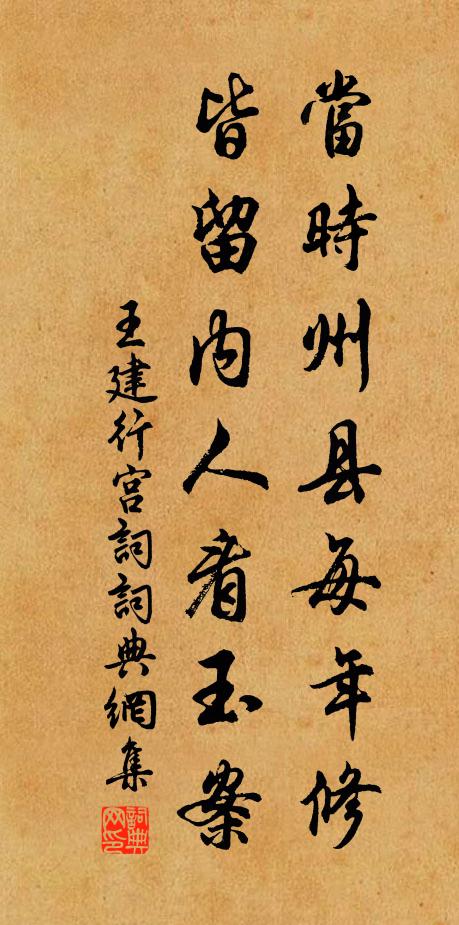 當時州县每年修
皆留内人看玉案
王建行宫詞詞典網集
詞典网印